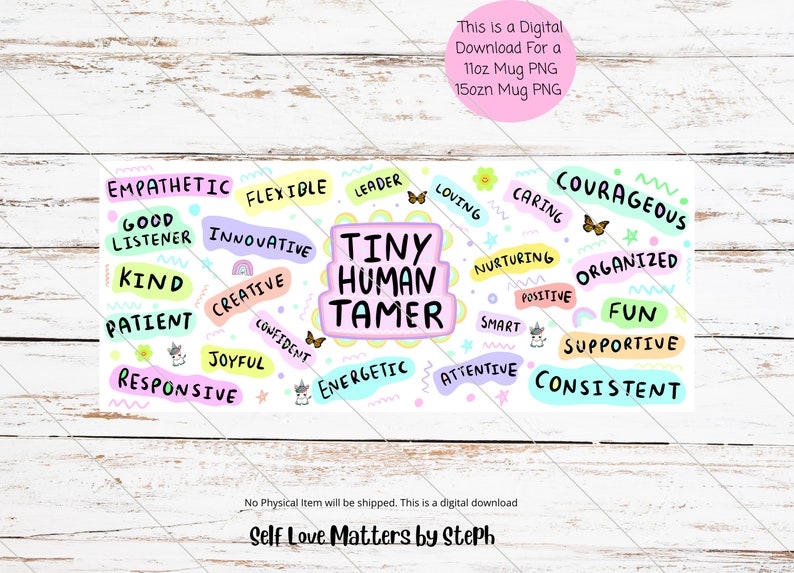 This is a Digital
Download For a
11oz Mug PNG
15ozn Mug PNG
EMPATHETIC
FLEXIBLE
LEADER
LOVING
CARING
COURAGEOUS
GOOD
LISTENER
INNOVATIVE
TINY
HUMAN
TAMER
NURTURING
ORGANIZED
KIND
CREATIVE
POSITIVE
FUN
PATIENT
CONFIDENT
SMART
SUPPORTIVE
JOYFUL
RESPONSIVE
ENERGETIC
ATTENTIVE
CONSISTENT
No Physical Item will be shipped. This is a digital download
Self Love Matters by StePh